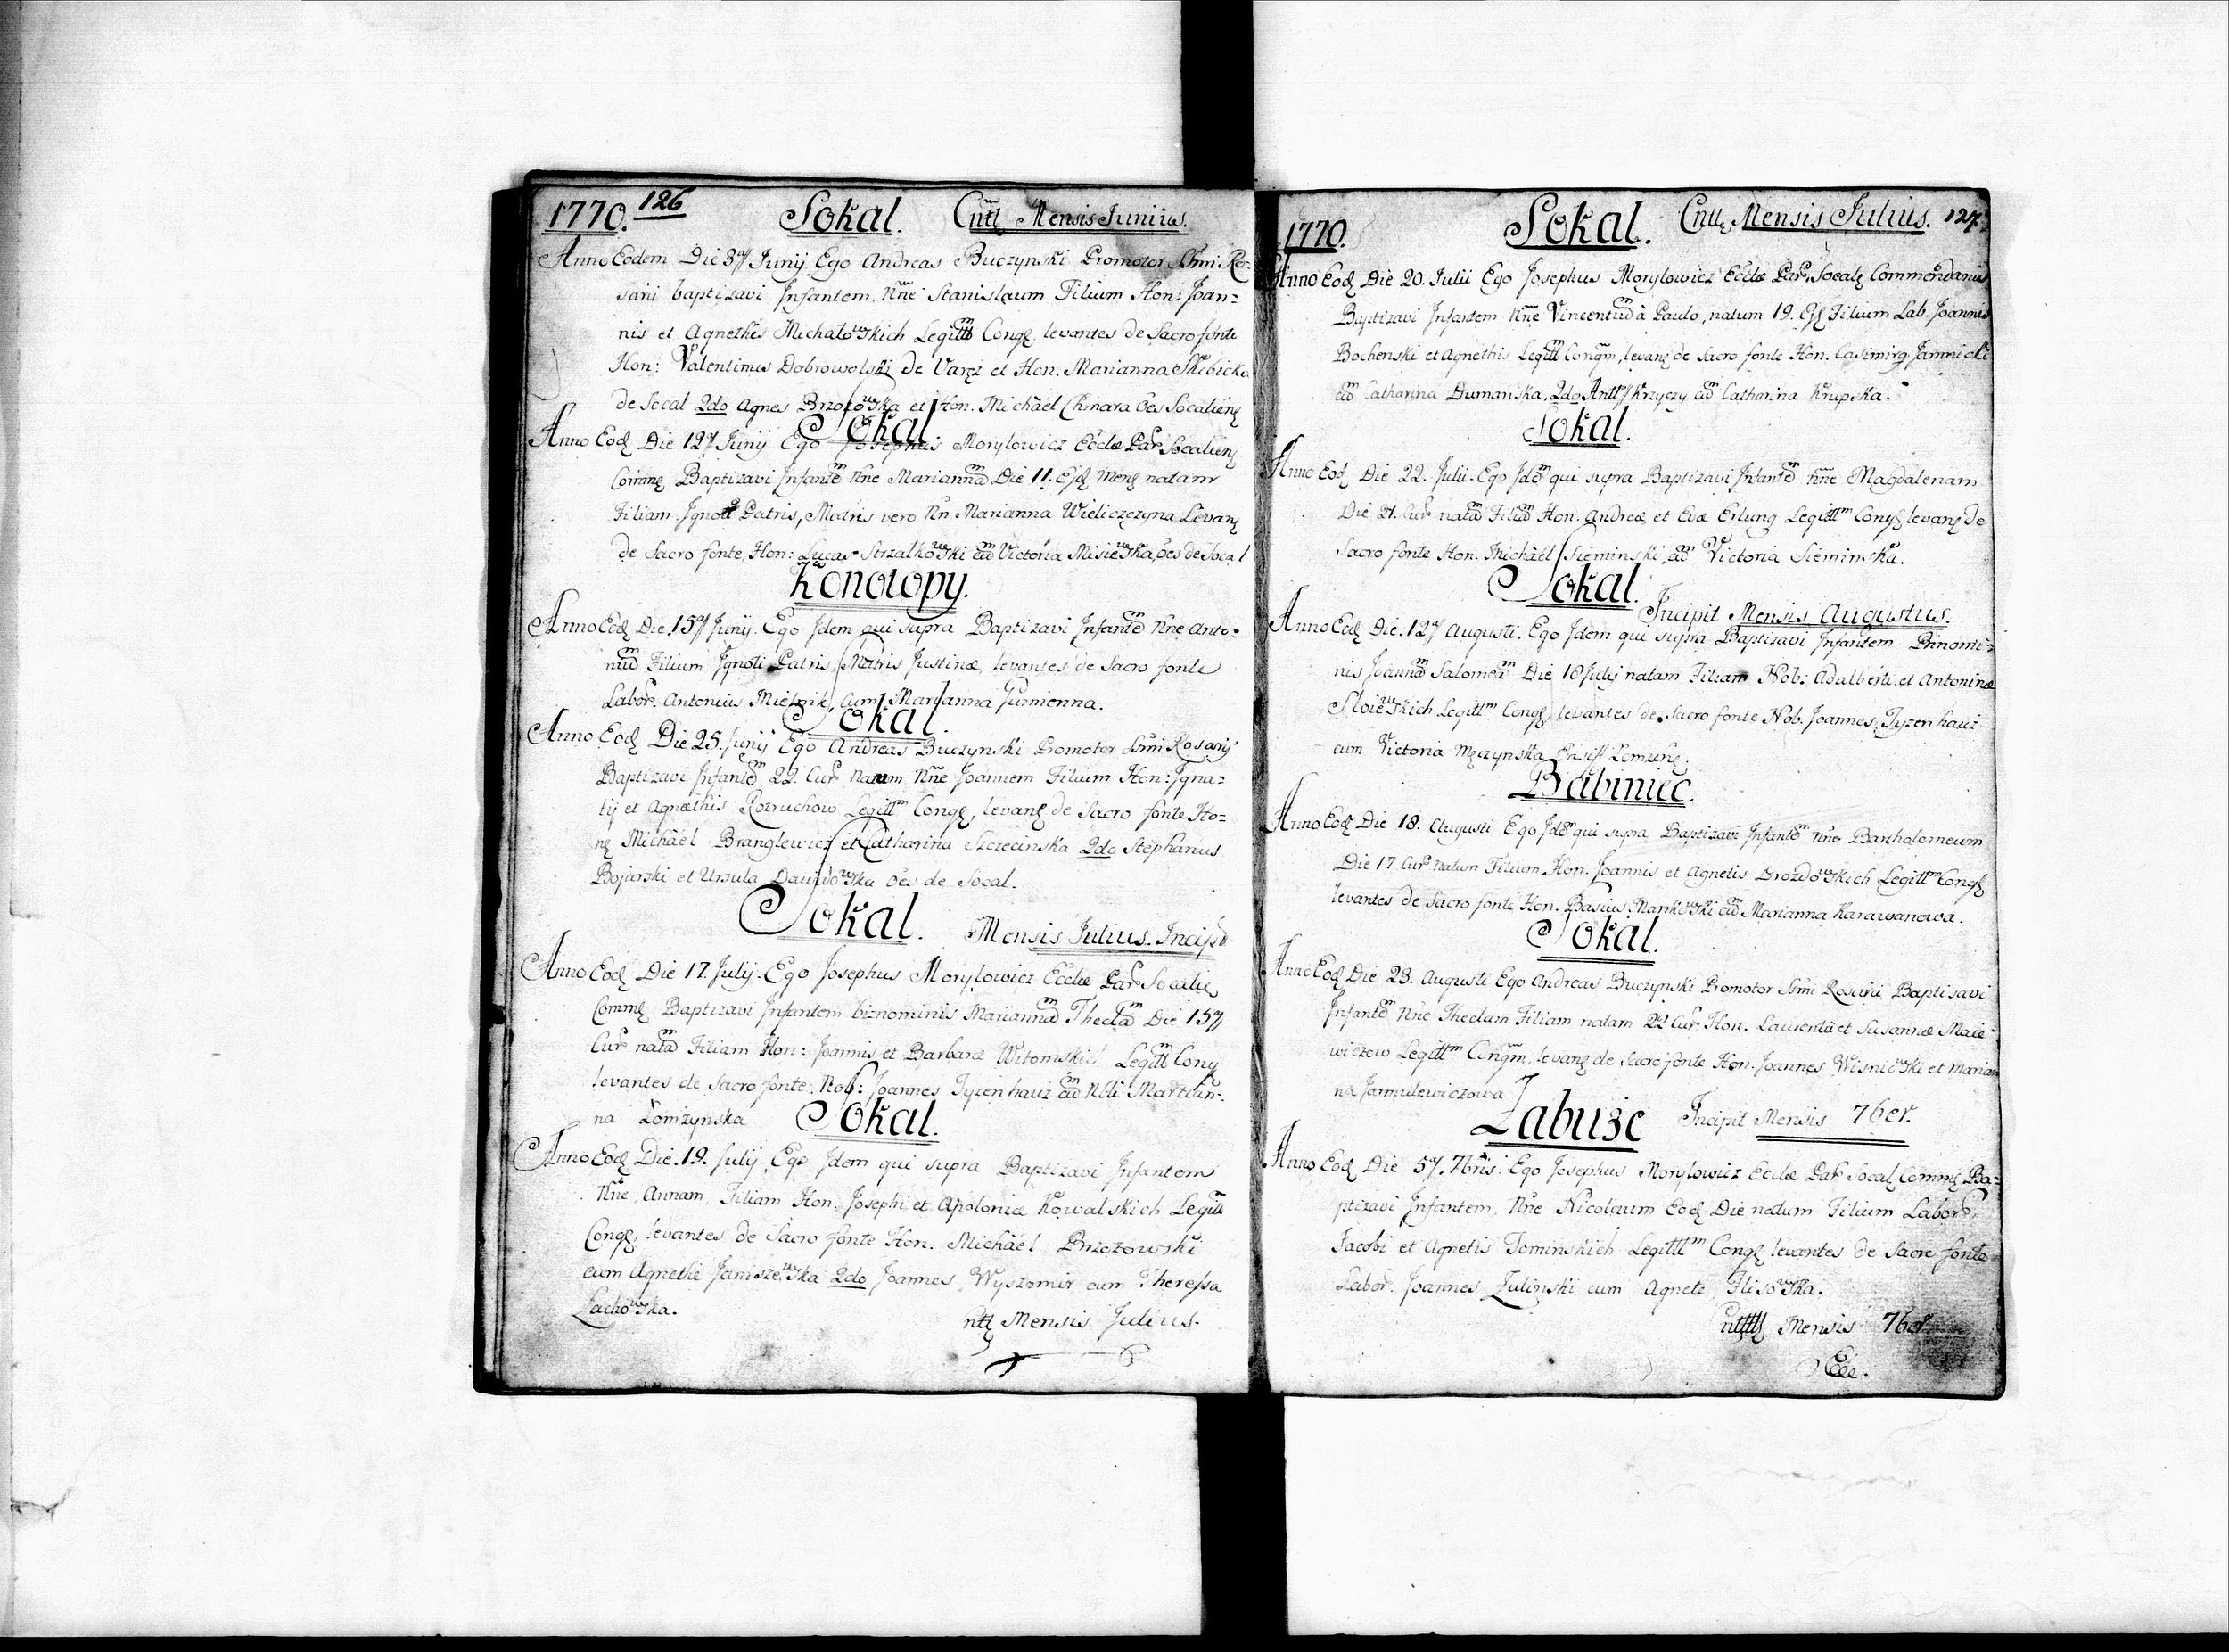 1770. 126 Sokal. Cntt Mensis Junius.
Anno Eodem Die 8va Junij Ego Andreas Buczynski Promotor Smi Ro-
sarii baptizavi Infantem Nne Stanislaum Filium Hon: Joan=
nis et Agnethis Michalowskich Legittm Congg levantes de Sacro fonte
Hon: Valentinus Dobrowolski de Varez et Hon. Marianna Skibicka
de Socal 2do Agnes Brzozowska et Hon. Michäel Chmara oes Socaliens
Sokal
Anno Eod Die 12 Junij Ego Josephus Morylowicz Eccle Par Socaliens
Comms Baptizavi Infantem Nne Mariannam Die 11. Ejsd Mens natam
Filiam Ignoti Patris, Matris vero Nn Marianna Wieliczczyna Levans
de Sacro fonte Hon: Lucas Strzalkowski cum Victoria Misiewska, oes de Socal
Konotopy.
Anno Eod Die 15 Junij. Ego Idem qui supra Baptizavi Infantem Nne Anto-
nium Filium Ignoti Patris, Matris Justinæ, levantes de Sacro fonte
Labor. Antonius Mielnik, cum Marianna Gumienna.
Sokal.
Anno Eod Die 25. Junij Ego Andreas Buczynski Promotor Smi Rosarij
Baptizavi Infantem 22. Cur natum Nne Joannem Filium Hon: Igna=
tij et Agnæthis Rozruchow Legittm Congg, levans de Sacro fonte Ho=
ns Michäel Branglewicz et Catharina Szczecinska 2do Stephanus
Bojarski et Ursula Dawidowska oes de Socal.
Sokal. Mensis Julius. Incipit
Anno Eod Die 17. Julij. Ego Josephus Morylowicz Eccle Par Socalie
Comms Baptizavi Infantem binominis Mariannam Theclam Die 15
Cur natam Filiam Hon: Joannis et Barbaræ Witomskich Legittm Cong
levantes de Sacro fonte. Nob: Joannes Tyzenhauz cum Nbli Martian-
na Łomżynska
Sokal.
Anno Eod Die. 19. Julij Ego Idem qui supra Baptizavi Infantem
Nne, Annam, Filiam Hon. Josephi et Apoloniæ Kowalskich Legitt
Congg, levantes de Sacro fonte Hon. Michäel Brzozowski
cum Agnethe Janiszewska 2do Joannes Wyszomir cum Theressa
Lachowska.
ntt Mensis Julius.
1770. Sokal. Cntt Mensis Julius. 127
Anno Eod Die 20. Julii Ego Josephus Morylowicz Eccle Par Socals Commendarius
Baptizavi Infantem Nne Vincentium à Paulo, natum 19. Filium Lab. Joannis
Bochenski et Agnethis Legittm Congm, levans de Sacro fonte Hon. Casimirg Jamnicki
cum Catharina Dumanska, 2do Krzyczy cum Catharina Krupska.
Sokal.
Anno Eod Die 22. Julii. Ego Idem qui supra Baptizavi Infantem Nne Magdalenam
Die 21. Cur natam Filiam Hon. Andreæ et Evæ Erlung Legittm Congg levans de
Sacro fonte Hon. Michäel Sieminski, cum Victoria Sieminska.
Sokal. Incipit Mensis Augustus.
Anno Eod Die. 12 Augusti. Ego Idem qui supra Baptizavi Infantem Binomi=
nis Joannam Salomeam Die 18 Julij natam Filiam Nob: Adalberti et Antoninæ
Sloiewskich Legittm Congg, levantes de Sacro fonte Nob. Joannes Tyzenhauz
cum Victoria
Babiniec.
Anno Eod Die 18. Augusti Ego Idem qui supra Baptizavi Infantem Nne Bartholomeum
Die 17 Cur natum Filium Hon. Joannis et Agnetis Drozdowskich Legittm Congg
levantes de Sacro fonte Hon. Basius Mankowski cum Marianna Karawanowa.
Sokal.
Anno Eod Die 23. Augusti Ego Andreas Buczynski Promotor Smi Rosarii Baptisavi
Infantem Nne Theclam Filiam natam 22 Cur Hon. Laurentii et Susannæ Maie
wiczow Legittm Congm, levans de Sacro fonte Hon. Joannes Wisniowski et Marian
na Jarmulewiczowa
Zabuże Incipit Mensis 7ber.
Anno Eod Die 5. 7bris. Ego Josephus Morylowicz Eccle Par Socal Comms Ba=
ptizavi Infantem, Nne Nicolaum Eod Die natum Filium Labor
Jacobi et Agnetis Tominskich Legittm Congg levantes de Sacro fonte
Labor. Joannes Zulinski cum Agnete Flisowska.
Mensis 7ber